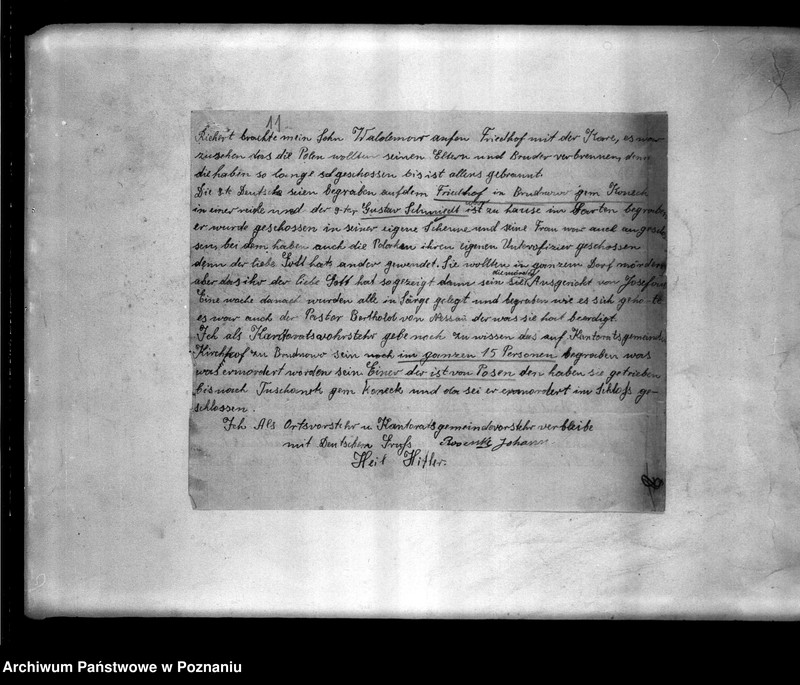 11
Richert brachte mein Sohn Waldemar aufen Friedhof mit der Kare, es war
zusehen das die Polen wollten seinen Eltern und Bruder verbrennen, denn
die haben so lange sdgeschossen bis ist allens gebrannt.
Die Deutsche seien begraben auf dem Friedhof in Brudnowo gem Koneck
in einer reide und der Gustav Schmiedt ist zu hause im Garten begraben
er wurde geschossen in seiner eigene Scheune und seine Frau war auch
sen, bei dem haben auch die Polacken ihren eigenen Unterofizier geschossen
denn der liebe Gott hats ander gewendet. Sie wollten in ganzem Dorf
aber das ihr der liebe Gott hat so gezeigt dann sein sie Ausgericht von
Eine woche danach wurden alle in Särge gelegt und begraben wie es sich
es war auch der Pastor Berthold von Nessau der was sie hat beerdigt.
Ich als Kantoratsvohrstehr gebe noch zu wissen das auf Kantoratsgemeinde
Kirchhof zu Brudnowo sein noch im ganzen 15 Personen begraben was
was ermordert worden sein Einer der ist von Posen den haben sie getrieben
bis nach Tuschanek gem Koneck und da sei er ermordert im Schloß ge-
schlossen.
Ich Als Ortsvorstehr u Kantoratsgemeindevorstehr verbleibe
mit Deutschem Gruß Johann
Heil Hitler.
Archiwum Państwowe w Poznaniu